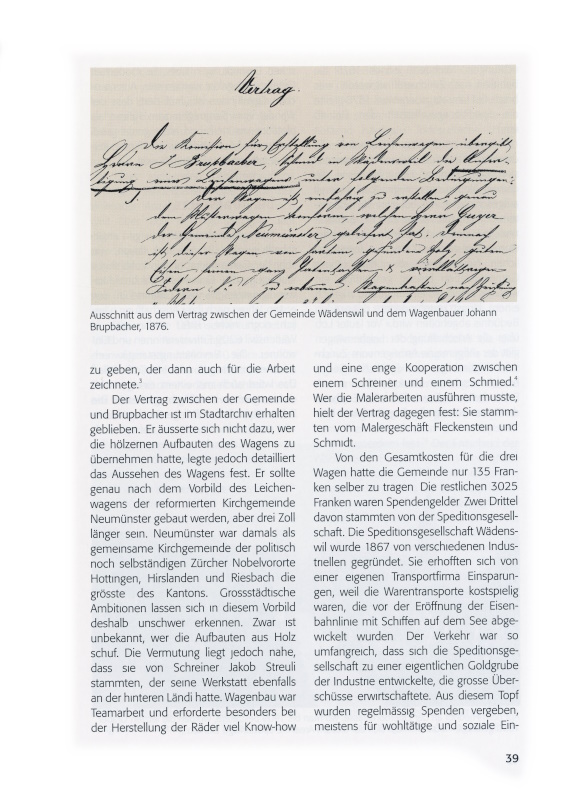 Vertrag.
Die Komission für Erstellung von Leichenwagen übergibt
Herrn J. Brupbacher, Schmid in Wädensweil die Anfer-
tigung eines Leichenwagens unter folgenden Bedingungen:
Der Wagen ist zu erstellen genau
dem Musterwagen konform, welchen Herr Geyer
der Gemeinde Neumünster geliefert hat. Demnach
ist dieser Wagen von hartem, gesundem Holz, gutem
Eisen ganz Patentachsen &
Federn zu
Ausschnitt aus dem Vertrag zwischen der Gemeinde Wädenswil und dem Wagenbauer Johann
Brupbacher, 1876.
zu geben, der dann auch für die Arbeit
zeichnete.³
Der Vertrag zwischen der Gemeinde
und Brupbacher ist im Stadtarchiv erhalten
geblieben. Er äusserte sich nicht dazu, wer
die hölzernen Aufbauten des Wagens zu
übernehmen hatte, legte jedoch detailliert
das Aussehen des Wagens fest. Er sollte
genau nach dem Vorbild des Leichen-
wagens der reformierten Kirchgemeinde
Neumünster gebaut werden, aber drei Zoll
länger sein. Neumünster war damals als
gemeinsame Kirchgemeinde der politisch
noch selbständigen Zürcher Nobelvororte
Hottingen, Hirslanden und Riesbach die
grösste des Kantons. Grossstädtische
Ambitionen lassen sich in diesem Vorbild
deshalb unschwer erkennen. Zwar ist
unbekannt, wer die Aufbauten aus Holz
schuf. Die Vermutung liegt jedoch nahe,
dass sie von Schreiner Jakob Streuli
stammten, der seine Werkstatt ebenfalls
an der hinteren Ländi hatte. Wagenbau war
Teamarbeit und erforderte besonders bei
der Herstellung der Räder viel Know-how
und eine enge Kooperation zwischen
einem Schreiner und einem Schmied.⁴
Wer die Malerarbeiten ausführen musste,
hielt der Vertrag dagegen fest: Sie stamm-
ten vom Malergeschäft Fleckenstein und
Schmidt.
Von den Gesamtkosten für die drei
Wagen hatte die Gemeinde nur 135 Fran-
ken selber zu tragen. Die restlichen 3025
Franken waren Spendengelder. Zwei Drittel
davon stammten von der Speditionsgesell-
schaft. Die Speditionsgesellschaft Wädens-
wil wurde 1867 von verschiedenen Indus-
triellen gegründet. Sie erhofften sich von
einer eigenen Transportfirma Einsparun-
gen, weil die Warentransporte kostspielig
waren, die vor der Eröffnung der Eisen-
bahnlinie mit Schiffen auf dem See abge-
wickelt wurden. Der Verkehr war so
umfangreich, dass sich die Speditionsge-
sellschaft zu einer eigentlichen Goldgrube
der Industrie entwickelte, die grosse Über-
schüsse erwirtschaftete. Aus diesem Topf
wurden regelmässig Spenden vergeben,
meistens für wohltätige und soziale Ein-
39